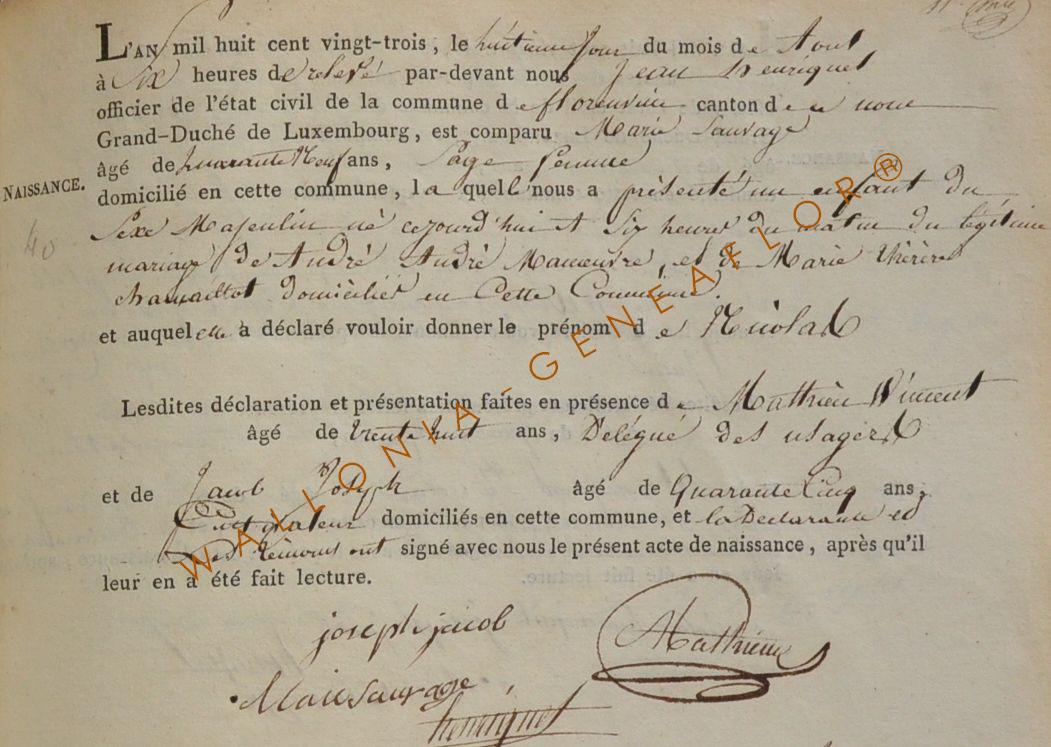 L'AN mil huit cent vingt-trois, le huitieme jour du mois de Aout
à Six heures de relevé par-devant nous Jean henriquet
officier de l'état civil de la commune de florenville canton de ce nom
Grand-Duché de Luxembourg, est comparu Marie Sauvage
âgé de quarante Neuf ans, Sage femme
NAISSANCE.
domicilié en cette commune, la quelle nous a présenté un enfant du
40
Sexe Masculin né cejourd'hui à Six heures du matin du légitime
mariage de André André Manoeuvre, et de Marie thérèse
domiciliés en Cette Commune.
et auquel elle à déclaré vouloir donner le prénom de Nicolas
Lesdites déclaration et présentation faites en présence de Matthieu Vincent
âgé de trente huit ans, Délégué des usagers
et de Jacob Joseph âgé de Quarante Cinq ans,
Cultivateur domiciliés en cette commune, et la Déclarante et
les témoins ont signé avec nous le présent acte de naissance, après qu'il
leur en a été fait lecture.
joseph jacob
Matthieu
Marie Sauvage
henriquet
WALLONIA-GENEAFLOR®